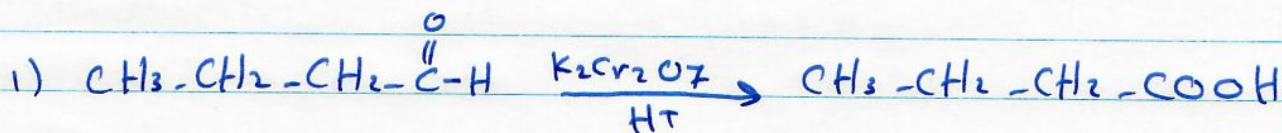 O
||
1) CH3-CH2-CH2-C-H K2Cr2O7 CH3-CH2-CH2-COOH
H+